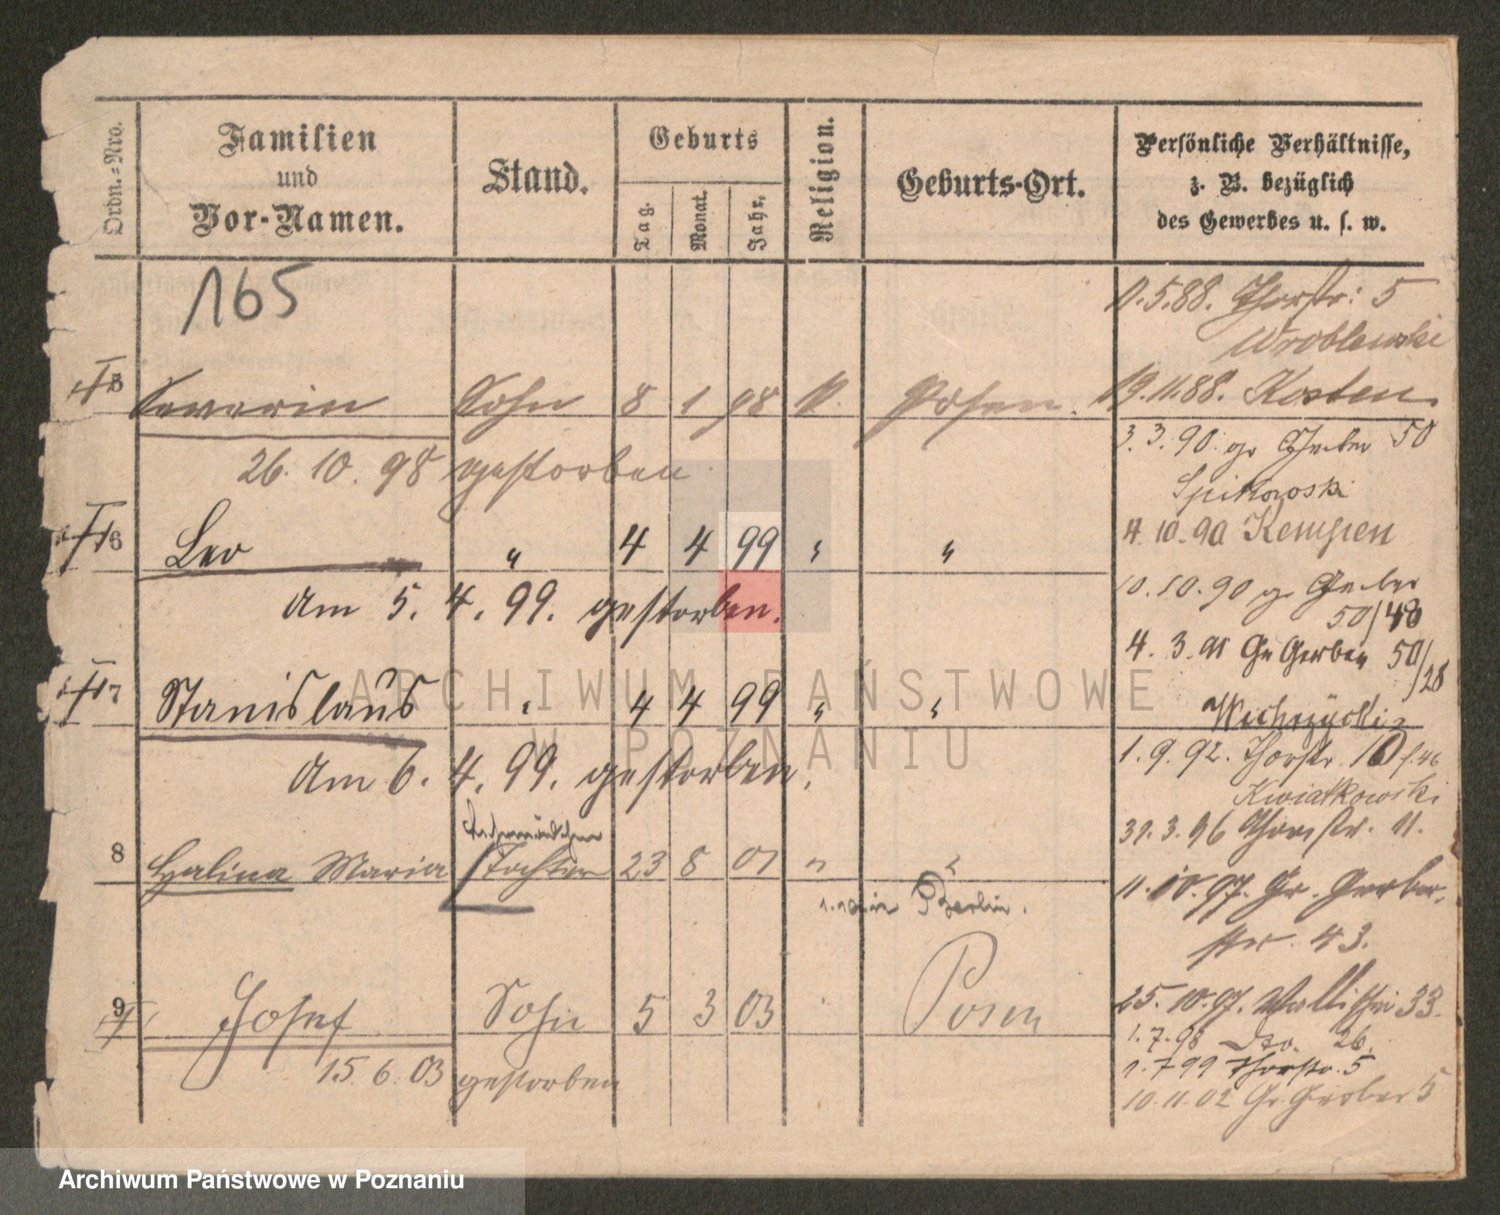 Ordn.-Nro.
Familien
und
Vor-Namen.
Stand.
Geburts
Tag.
Monat.
Jahr.
Religion.
Geburts-Ort.
Persönliche Verhältnisse,
z. B. bezüglich
des Gewerbes u. s. w.
165
5 Severin Sohn 8 1 98 k. Posen.
26. 10. 98 gestorben
6 Leo " 4 4 99 " "
Am 5. 4. 99. gestorben.
7 Stanislaus " 4 4 99 " "
Am 6. 4. 99. gestorben.
8 Halina Maria Tochter 23 8 01 " "
Berlin.
9 Josef Sohn 5 3 03 Posen
15. 6. 03 gestorben
11.5.88. Thorstr: 5
Wroblewski
19.11.88. Kosten
3. 3. 90. gr Gerber 50
Spikowski
4. 10. 90 Kempen
10. 10. 90 gr Gerber
50/48
4. 3. 91 Gr Gerber 50/28
1. 9. 92. Thorstr. 10 f. 46
Kwiatkowski
31. 3. 96 Thorstr. 11.
11. 10. 97. Gr. Gerber-
str. 43.
25. 10. 97. Wallischei 33.
1. 7. 98 do. 26.
1. 7 99 Thorstr. 5
10. 11. 02 Gr. Gerber 5
ARCHIWUM PAŃSTWOWE
W POZNANIU
Archiwum Państwowe w Poznaniu